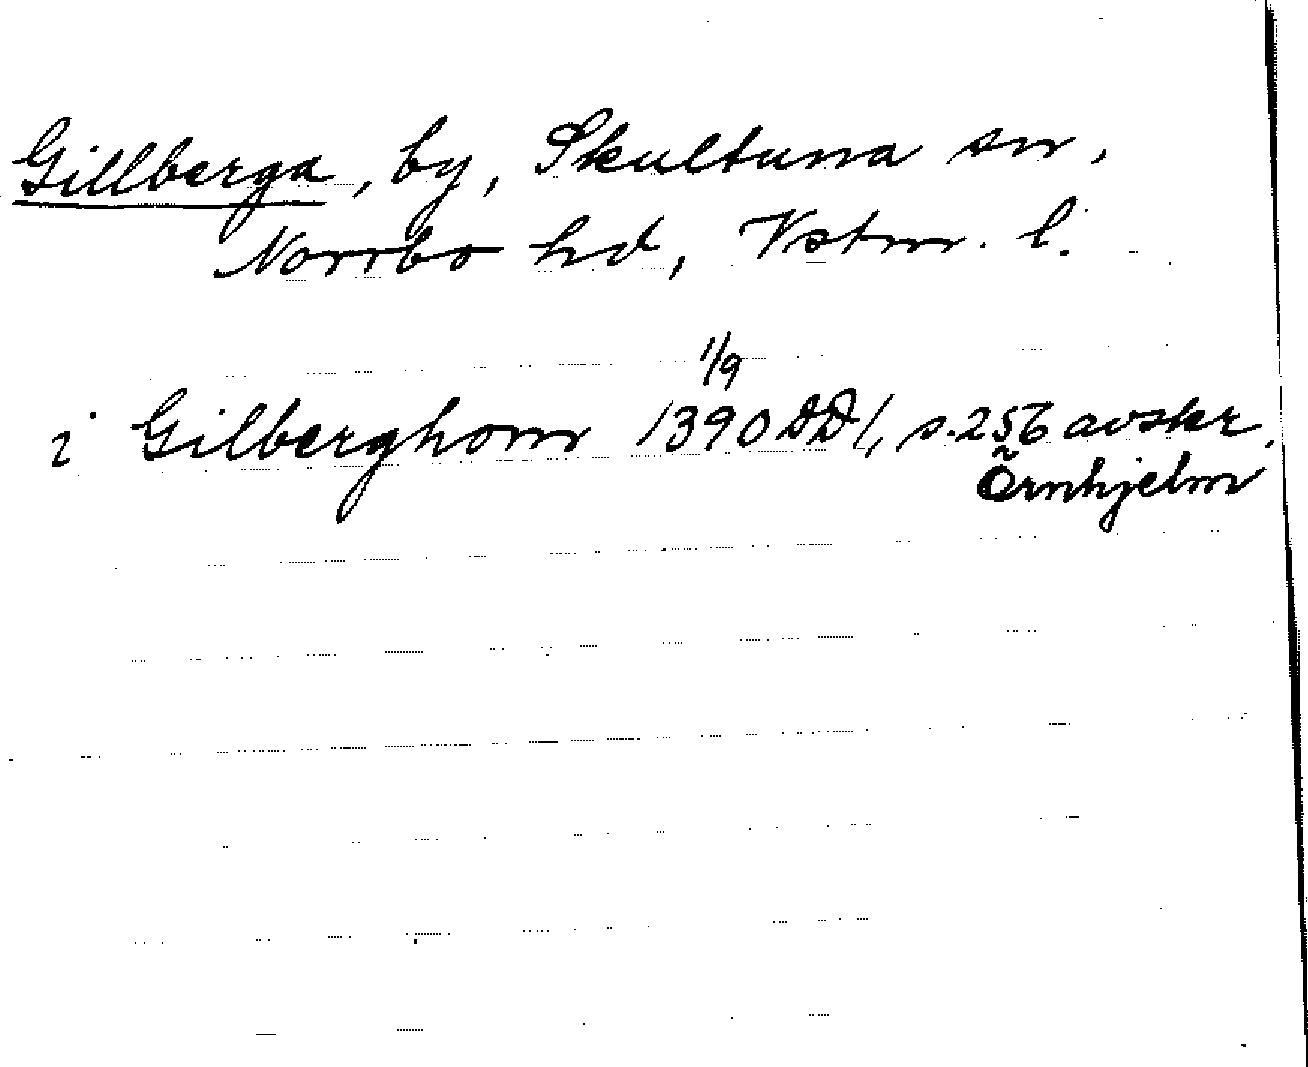 Gillberga, by, Skultuna sn,
Norrbo hd, Vstm. l.
1/9
i Gilberghom 1390 DD 1, s. 256 avskr.
Örnhjelm